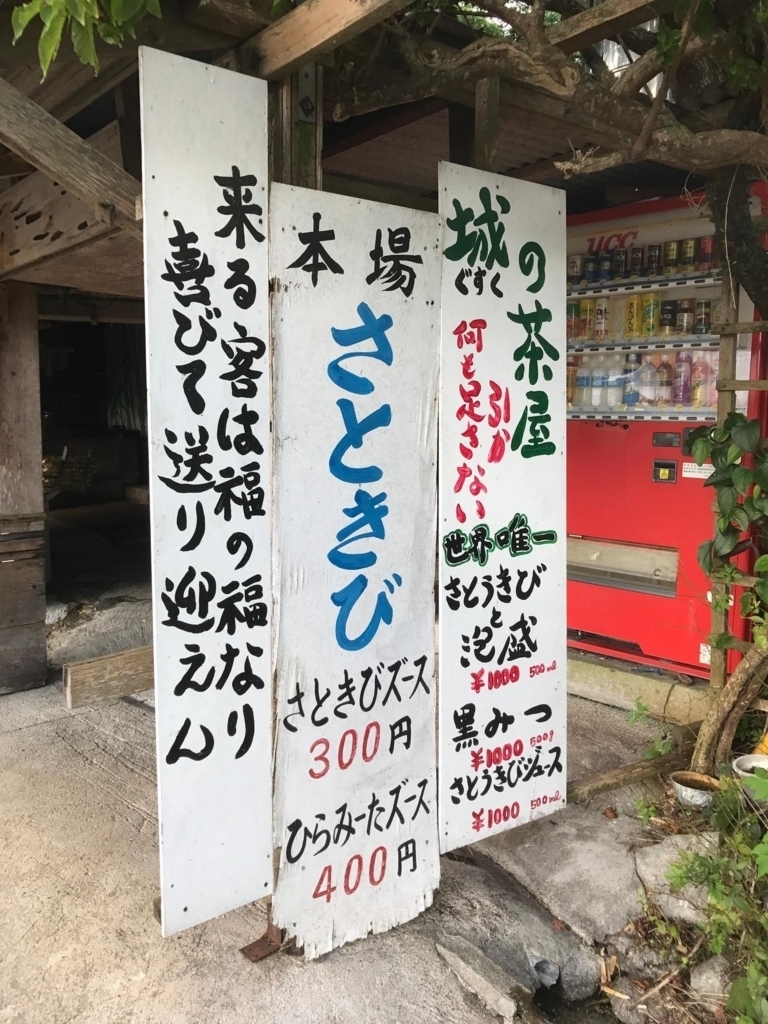 城の茶屋
ぐすく
何も引か
足さない
世界唯一
さとうきび
と
泡盛
¥1000 500ml
黒みつ
¥1000 500g
さとうきびジュース
¥1000 500ml
本場
さときび
さときびズース
300円
ひらみーたズース
400円
来る客は福の福なり
喜びて送り迎えん
UCC